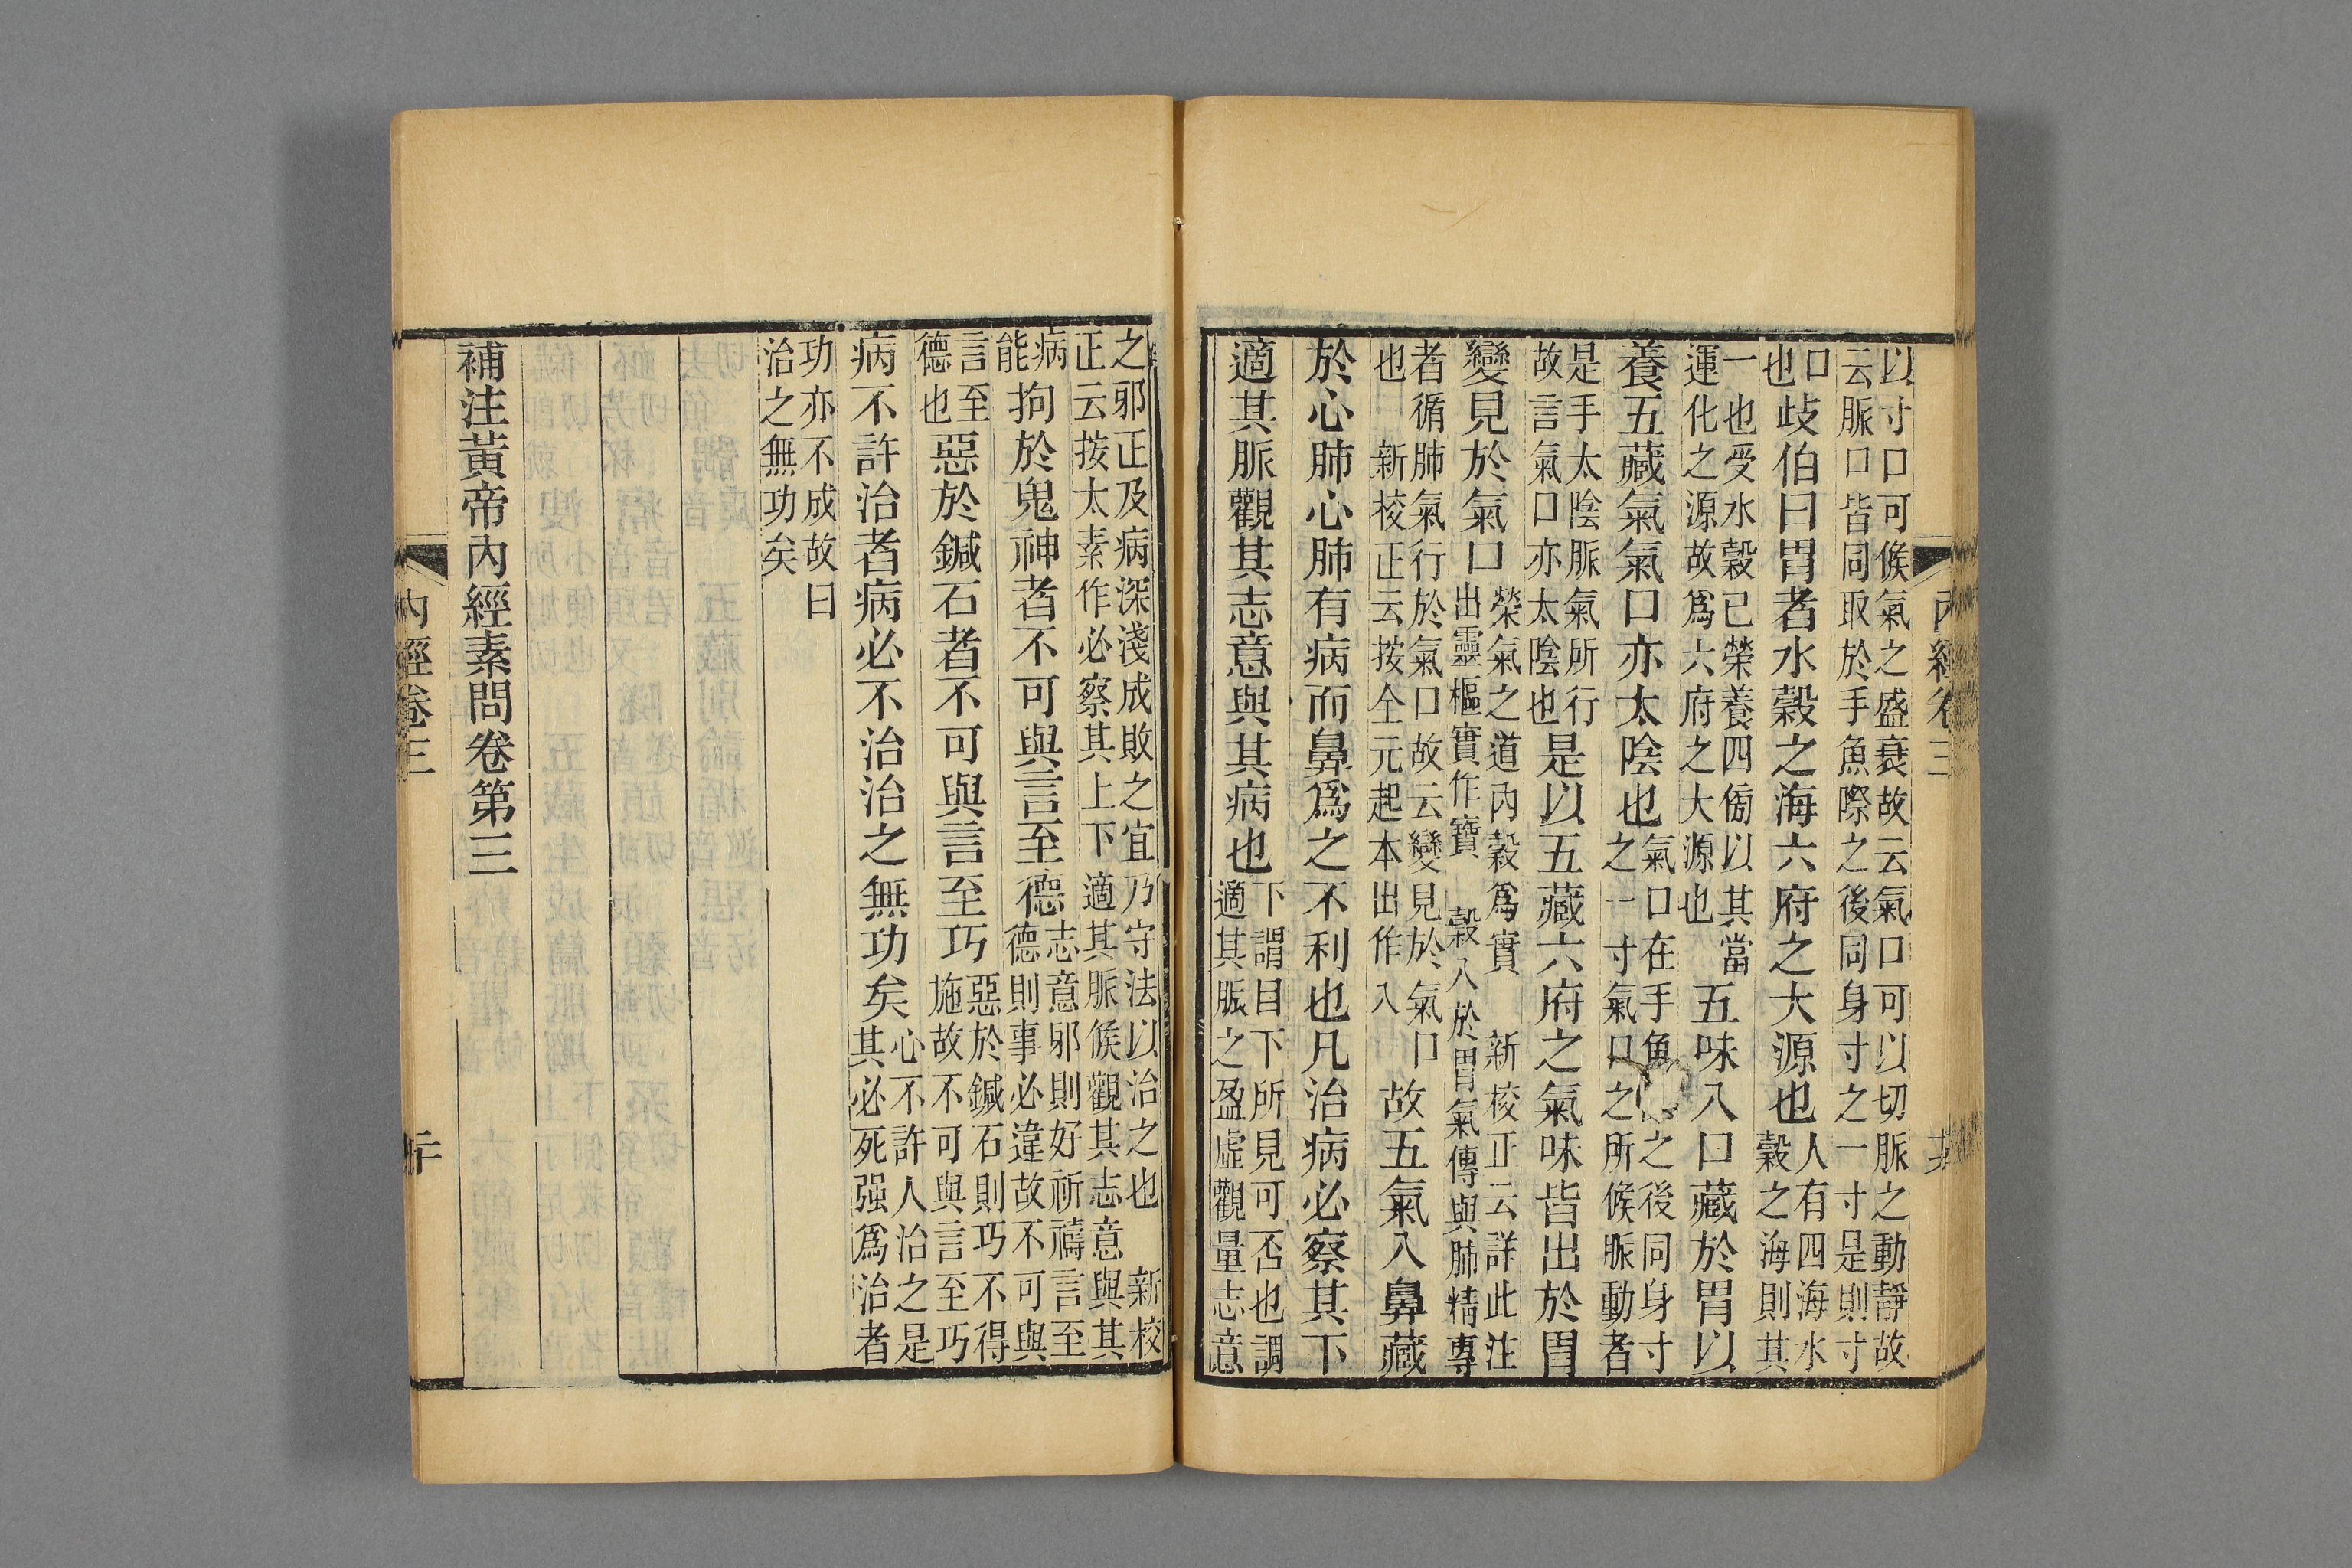 以寸口可候氣之盛衰故云氣口可以切脈之動靜故
云脈口皆同取於手魚際之後同身寸之一寸是則寸
口
也
岐伯曰胃者水穀之海六府之大源也
人有四海水
穀之海則其
一也受水穀已榮養四傍以其當
運化之源故爲六府之大源也
五味入口藏於胃以
養五藏氣氣口亦太陰也
氣口在手魚之後同身寸
之一寸氣口之所候脈動者
是手太陰脈氣所行
故言氣口亦太陰也
是以五藏六府之氣味皆出於胃
變見於氣口
榮氣之道內穀爲實　新校正云詳此注
出靈樞實作寶　穀入於胃氣傳與肺精專
者循肺氣行於氣口故云變見於氣口
也　新校正云按全元起本出作入
故五氣入鼻藏
於心肺心肺有病而鼻爲之不利也凡治病必察其下
適其脈觀其志意與其病也
下謂目下所見可否也調
適其脈之盈虛觀量志意
之邪正及病深淺成敗之宜乃守法以治之也　新校
正云按太素作必察其上下適其脈候觀其志意與其
病
能
拘於鬼神者不可與言至德
志意邪則好祈禱言至
德則事必違故不可與
言至
德也
惡於鍼石者不可與言至巧
惡於鍼石則巧不得
施故不可與言至巧
病不許治者病必不治治之無功矣
心不許人治之是
其必死强爲治者
功亦不成故曰
治之無功矣
補注黃帝內經素問卷第三
內經卷三